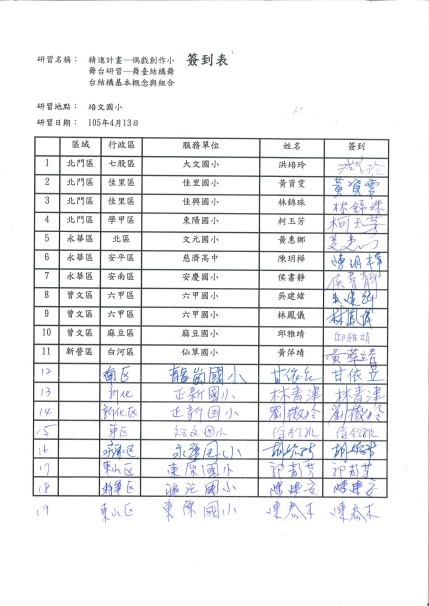 簽到表
研習名稱: 精進計畫—偶戲創作小
舞台研習—舞臺結構舞
台結構基本概念與組合
研習地點: 培文國小
研習日期: 105年4月13日
區域 行政區 服務單位 姓名 簽到
1 北門區 七股區 大文國小 洪培玲
2 北門區 佳里區 佳里國小 黃寶雯 黃寶雯
3 北門區 佳里區 佳興國小 林錦珠 林錦珠
4 北門區 學甲區 東陽國小 柯玉芳 柯玉芳
5 永華區 北區 文元國小 黃惠娜
6 永華區 安平區 慈濟高中 陳玥樺 陳玥樺
7 永華區 安南區 安慶國小 侯書靜 侯書靜
8 曾文區 六甲區 六甲國小 吳建緯
9 曾文區 六甲區 六甲國小 林鳳儀 林鳳儀
10 曾文區 麻豆區 麻豆國小 邱雅靖 邱雅靖
11 新營區 白河區 仙草國小 黃萍靖 黃萍靖
12 南區 龍崗國小 甘依立 甘依立
13 新化 正新國小 林書津 林書津
14 新化區 正新國小 劉徽玲 劉徽玲
15 東區 國小
16 永華區 永華國小
17 東山區 東原國小
18 國小
19 東山區 東原國小 陳